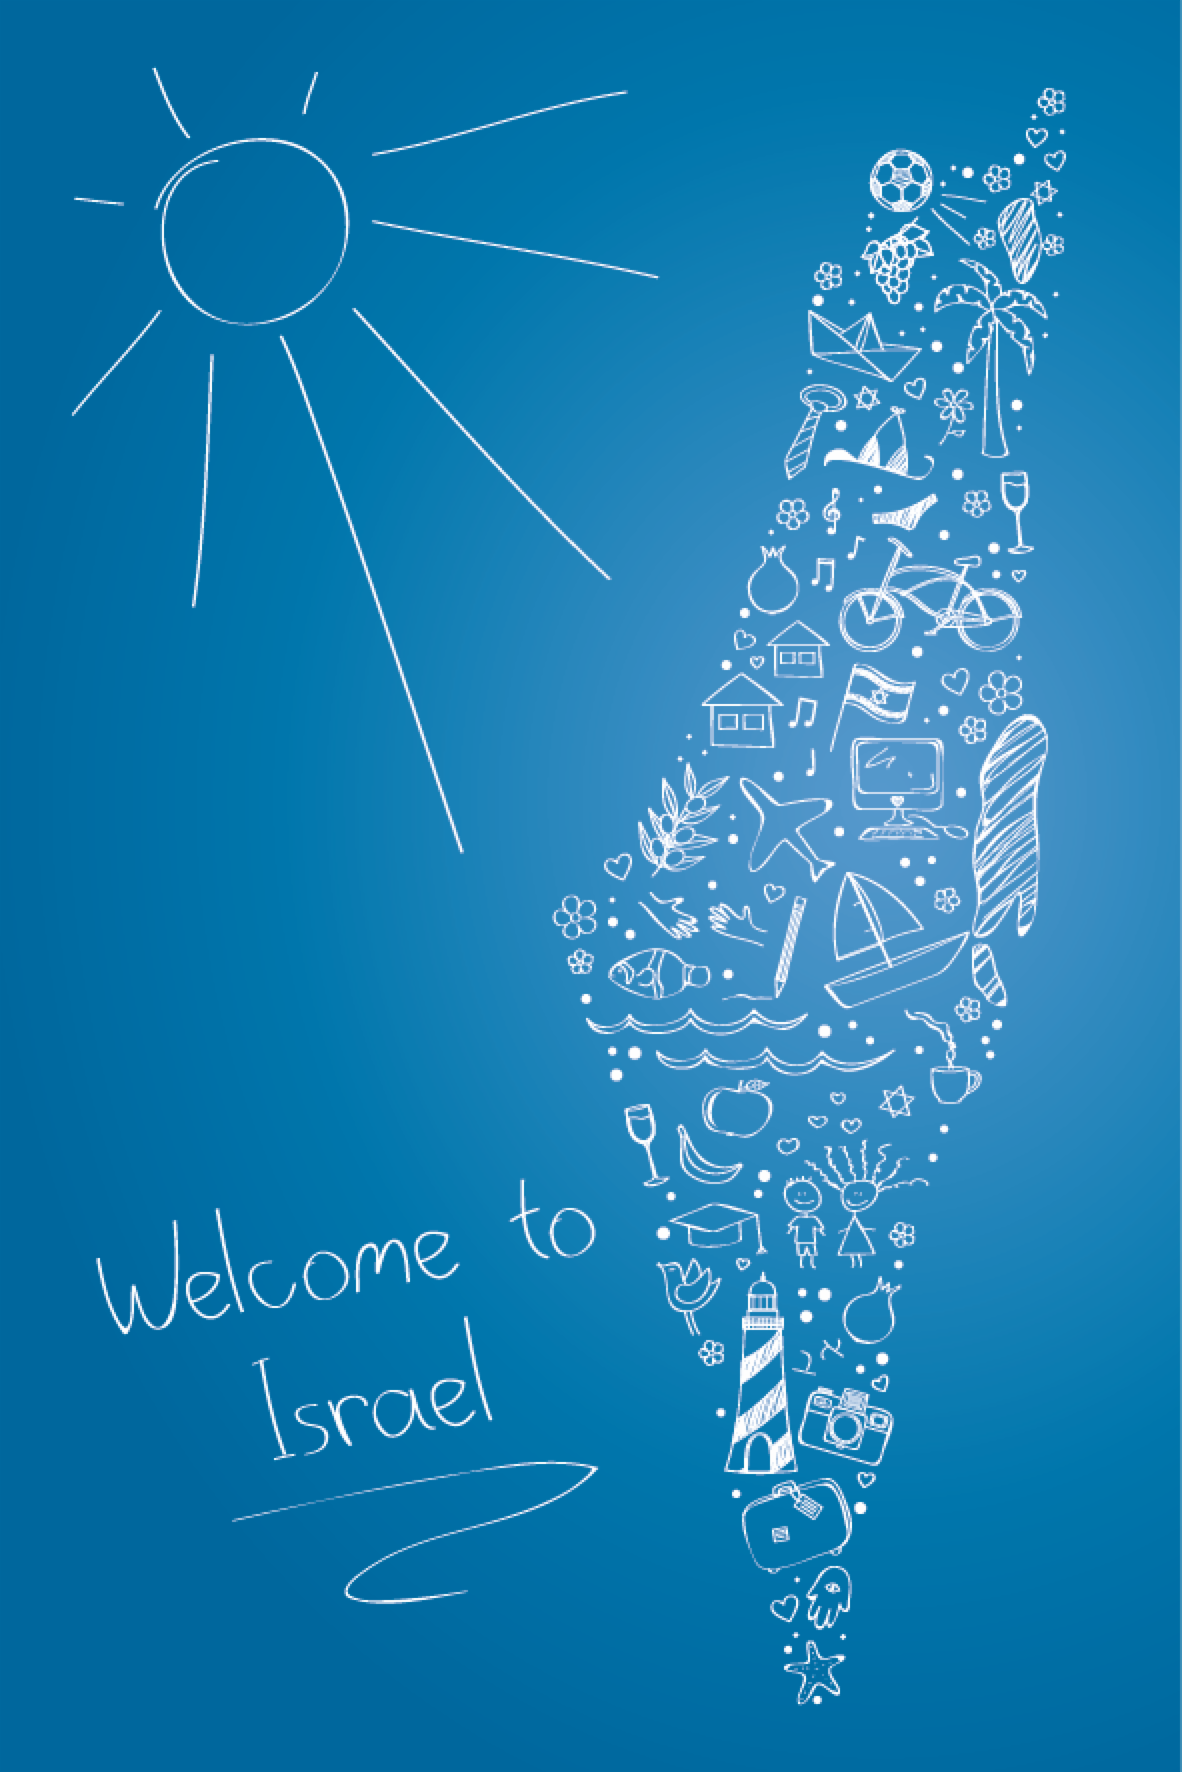 Welcome to
Israel